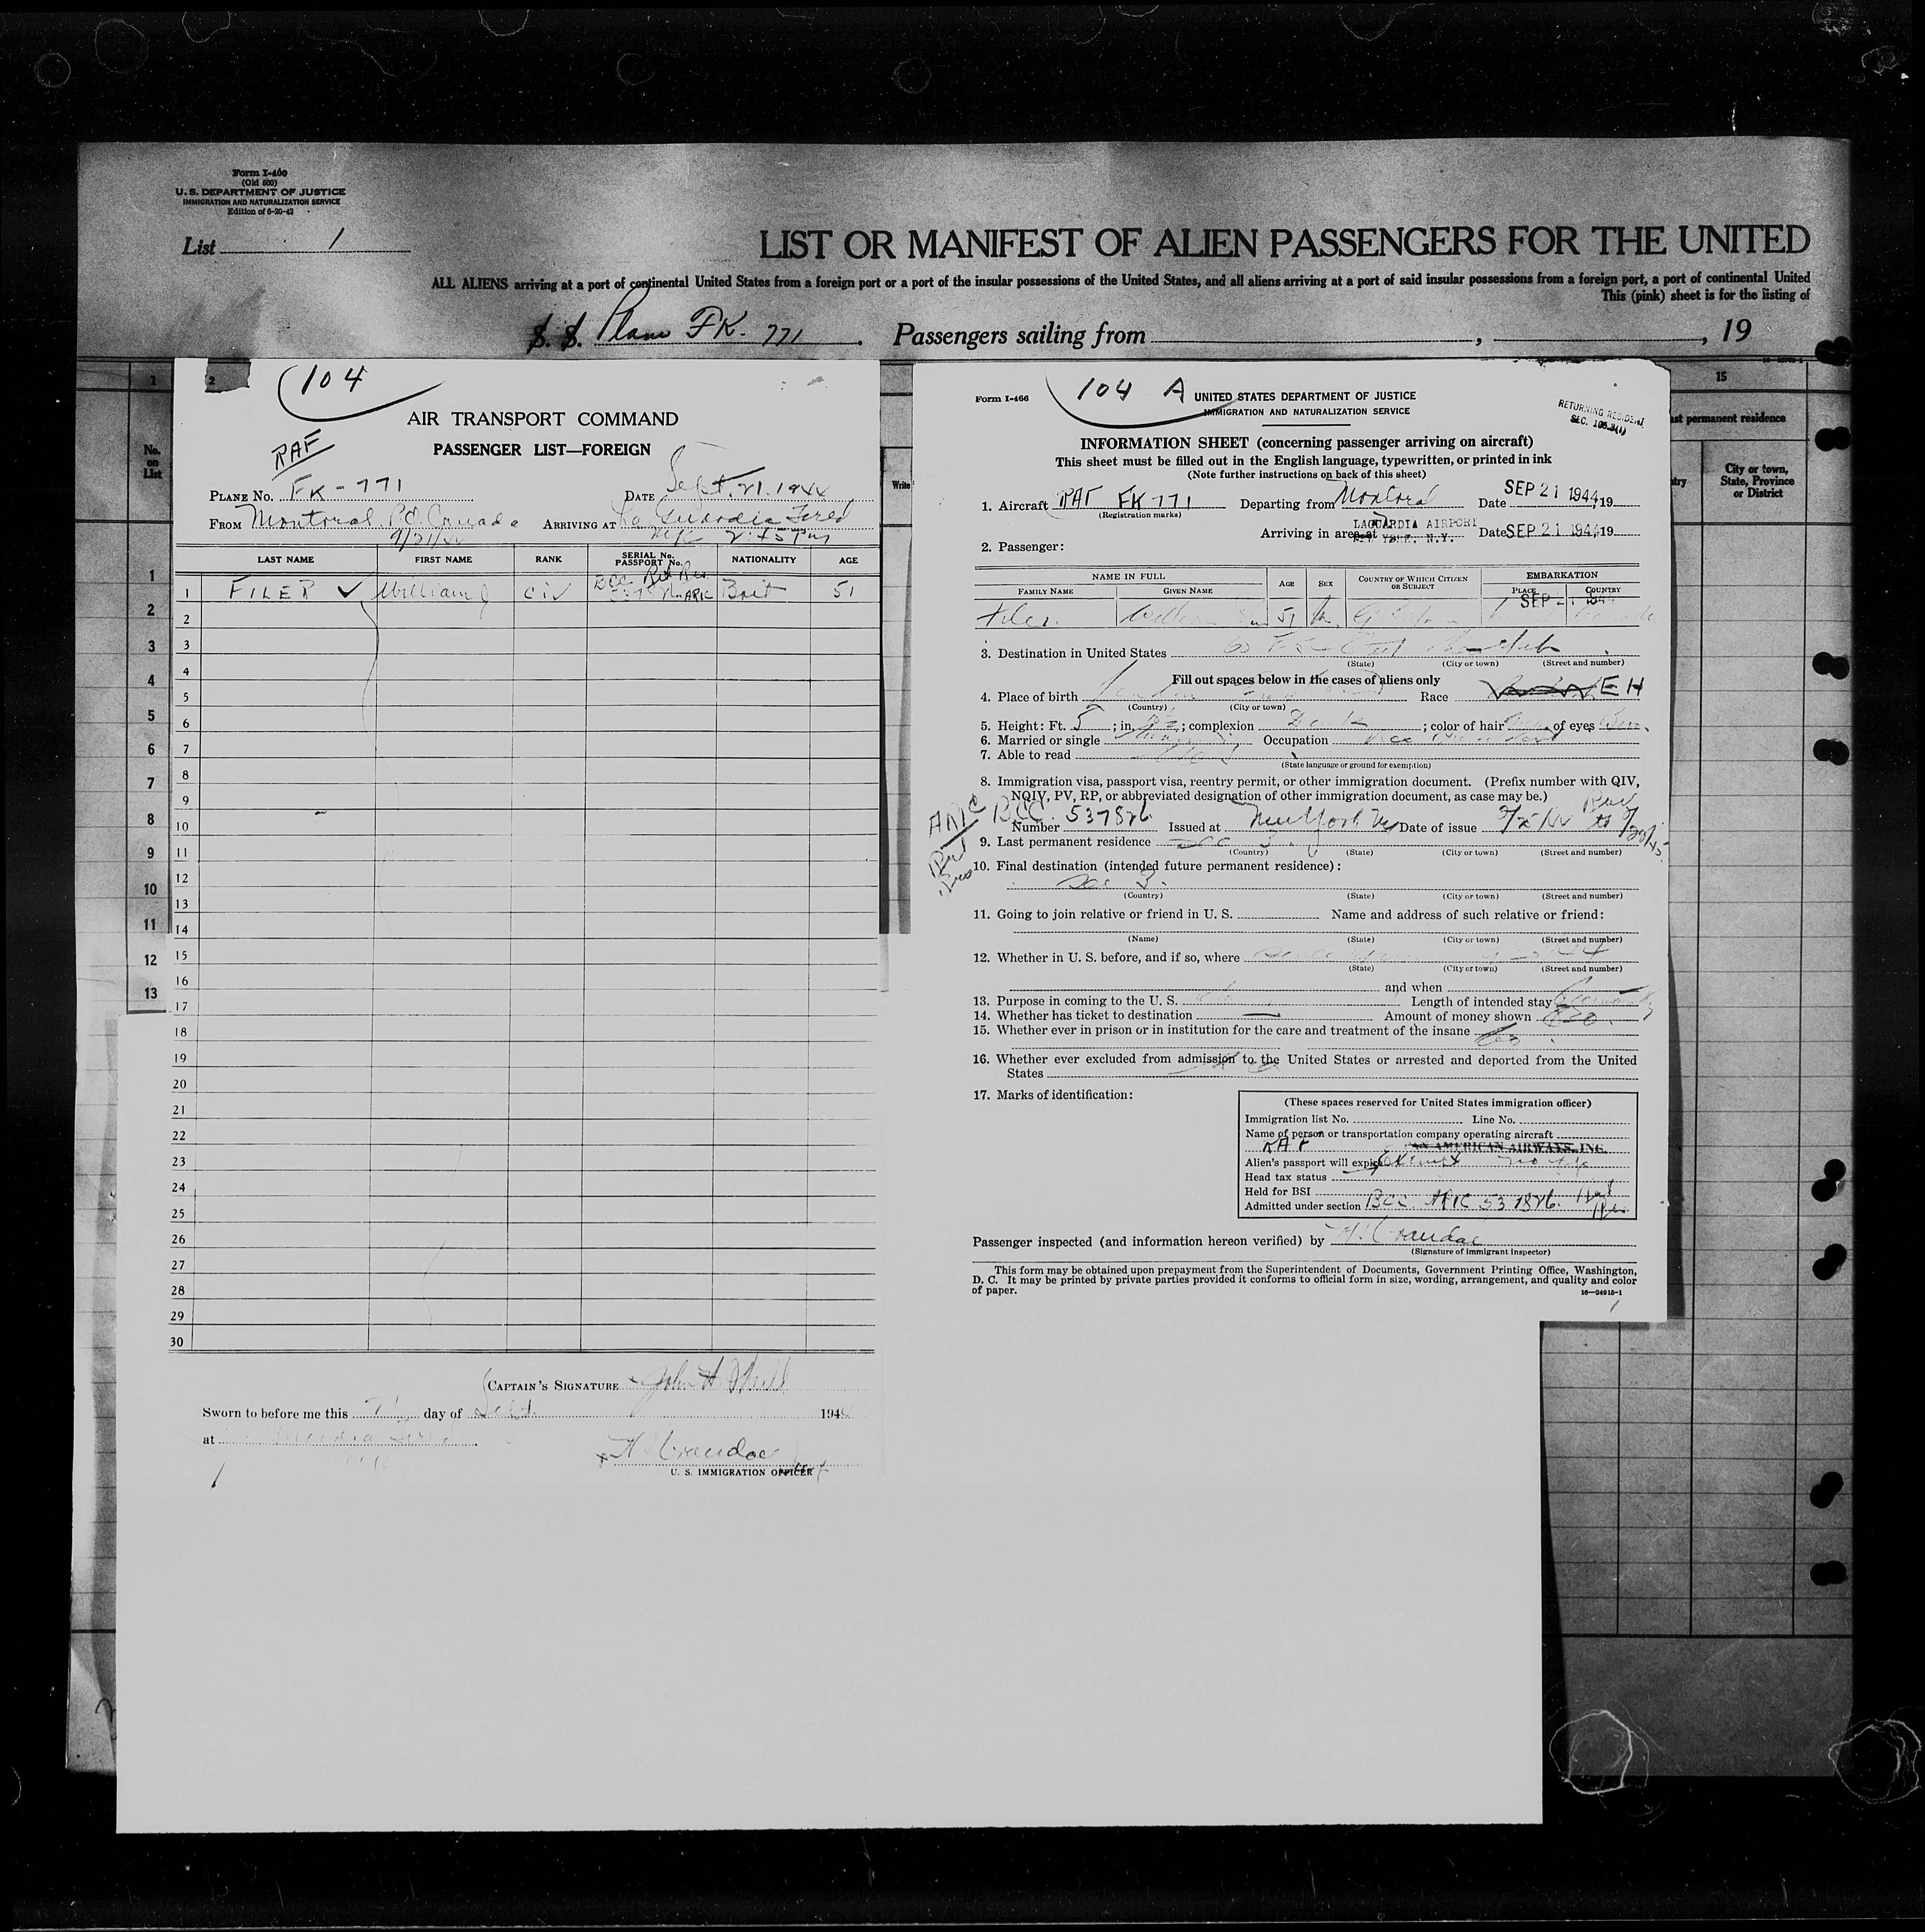 Form I-400
(Old 500)
U. S. DEPARTMENT OF JUSTICE
IMMIGRATION AND NATURALIZATION SERVICE
Edition of 6-20-42
List 1
LIST OR MANIFEST OF ALIEN PASSENGERS FOR THE UNITED
ALL ALIENS arriving at a port of continental United States from a foreign port or a port of the insular possessions of the United States, and all aliens arriving at a port of said insular possessions from a foreign port, a port of continental United
This (pink) sheet is for the listing of
S. S. Plane FK. 771. Passengers sailing from , , 19
1
2
No. on List
1
2
3
4
5
6
7
8
9
10
11
12
13
104
AIR TRANSPORT COMMAND
RAF
PASSENGER LIST—FOREIGN
PLANE No. FK-771 DATE Sept. 21. 1944
FROM Montreal P.Q. Canada ARRIVING AT La Guardia Field
9/21/44 2:45 PM
LAST NAME FIRST NAME RANK SERIAL No. PASSPORT No. NATIONALITY AGE
1 FILER ✓ William J CIV BCC Ret Res. ARIC Brit 51
2
3
4
5
6
7
8
9
10
11
12
13
14
15
16
17
18
19
20
21
22
23
24
25
26
27
28
29
30
CAPTAIN'S SIGNATURE John H
Sworn to before me this 21 day of Sept. 1944
at La Guardia Field
U. S. IMMIGRATION OFFICER
1
Write
104 A
Form I-466
UNITED STATES DEPARTMENT OF JUSTICE
IMMIGRATION AND NATURALIZATION SERVICE
RETURNING RESIDENT
SEC.
INFORMATION SHEET (concerning passenger arriving on aircraft)
This sheet must be filled out in the English language, typewritten, or printed in ink
(Note further instructions on back of this sheet)
1. Aircraft RAF FK-771 Departing from Montreal Date SEP 21 1944, 19
(Registration marks)
Arriving in area at LAGUARDIA AIRPORT NEW YORK, N.Y. Date SEP 21 1944, 19
2. Passenger:
NAME IN FULL AGE SEX COUNTRY OF WHICH CITIZEN OR SUBJECT EMBARKATION
FAMILY NAME GIVEN NAME PLACE COUNTRY
Filer William 51 M
3. Destination in United States
(State) (City or town) (Street and number)
Fill out spaces below in the cases of aliens only
4. Place of birth London Race EH
(Country) (City or town)
5. Height: Ft. 5; in. ; complexion Dark; color of hair of eyes
6. Married or single Occupation
7. Able to read
(State language or ground for exemption)
8. Immigration visa, passport visa, reentry permit, or other immigration document. (Prefix number with QIV,
NQIV, PV, RP, or abbreviated designation of other immigration document, as case may be.)
ARIC BCC.
Number 537826 Issued at New York Date of issue
Ret Res
9. Last permanent residence See 3.
(Country) (State) (City or town) (Street and number)
10. Final destination (intended future permanent residence):
See 3.
(Country) (State) (City or town) (Street and number)
11. Going to join relative or friend in U. S. Name and address of such relative or friend:
(Name) (State) (City or town) (Street and number)
12. Whether in U. S. before, and if so, where
(State) (City or town) (Street and number)
and when
13. Purpose in coming to the U. S. Length of intended stay
14. Whether has ticket to destination — Amount of money shown
15. Whether ever in prison or in institution for the care and treatment of the insane
16. Whether ever excluded from admission to the United States or arrested and deported from the United
States
17. Marks of identification:
(These spaces reserved for United States immigration officer)
Immigration list No. Line No.
Name of person or transportation company operating aircraft
RAF PAN AMERICAN AIRWAYS, INC.
Alien's passport will expire
Head tax status
Held for BSI
Admitted under section BCC ARIC 537826. Ret Res.
Passenger inspected (and information hereon verified) by
(Signature of immigrant inspector)
This form may be obtained upon prepayment from the Superintendent of Documents, Government Printing Office, Washington,
D. C. It may be printed by private parties provided it conforms to official form in size, wording, arrangement, and quality and color
of paper.
16—24915-1
15
permanent residence
City or town, State, Province or District